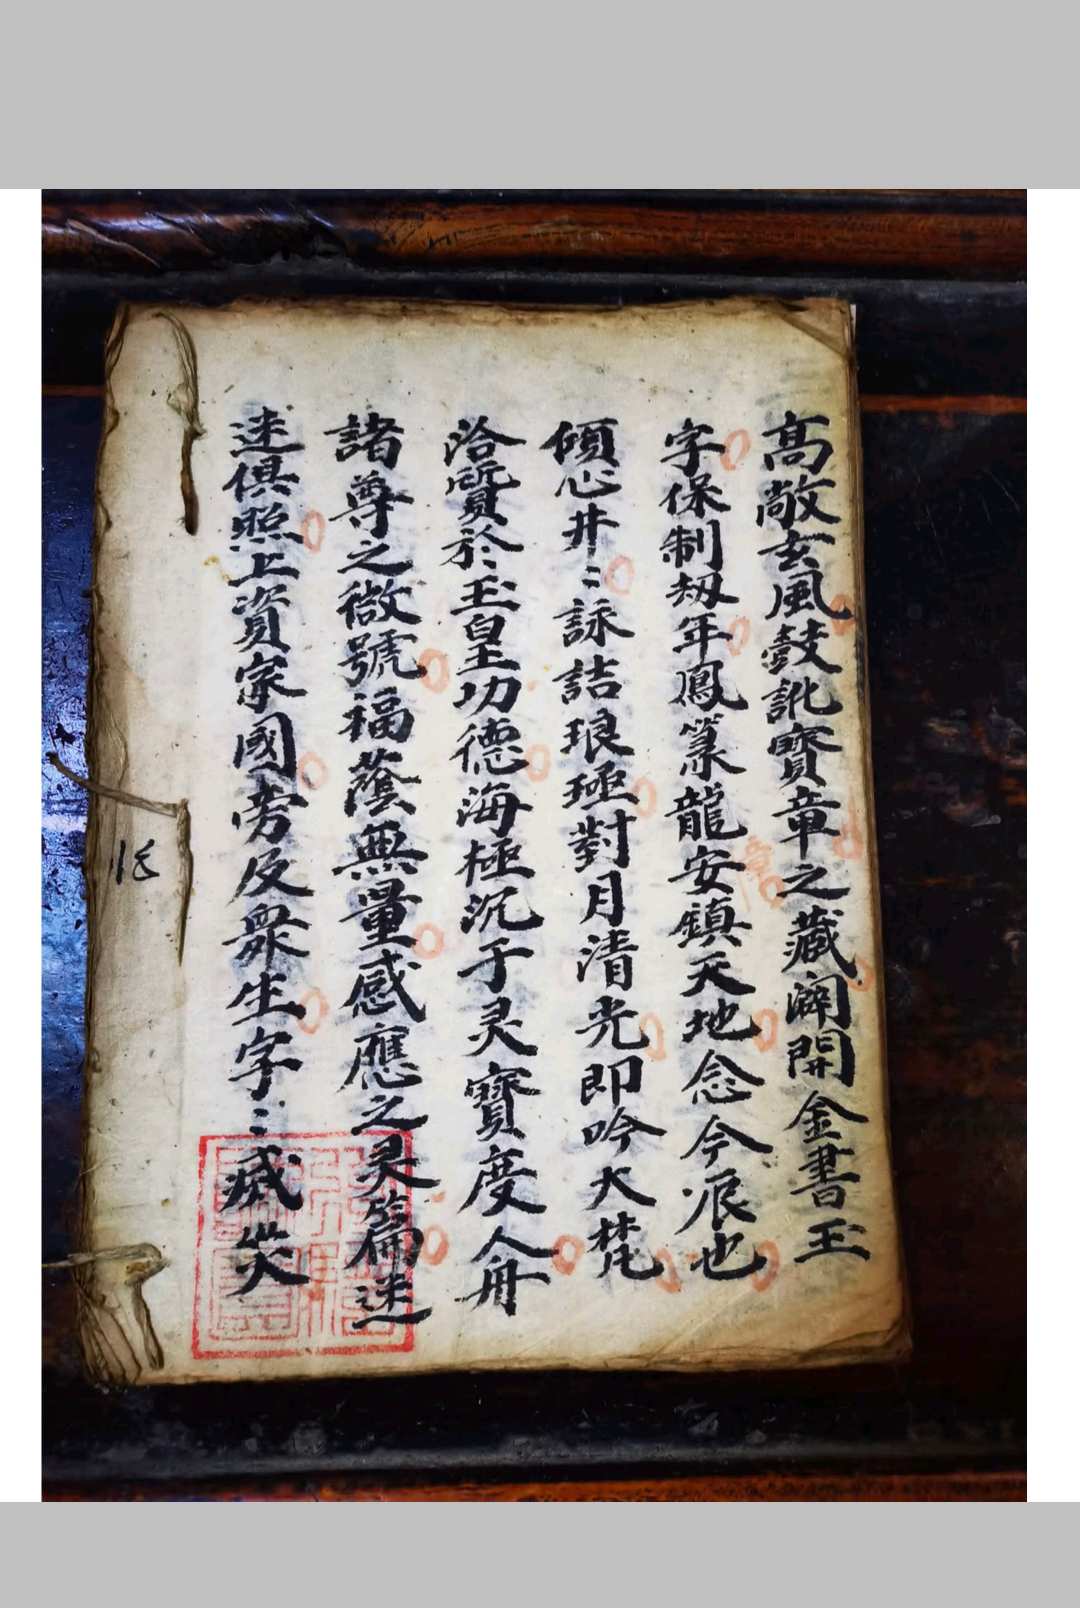 高敞玄風鼓訛寶章之藏闢開金書玉
字保制刼年鳳篆龍安鎮天地念今辰也
傾心井〻詠詰琅瑘對月清光即吟大梵
洽質於玉皇功德海極沉于灵寶度人舟
諸尊之微號福蔭無量感應之灵篇迷
迷俱照上資家國旁及衆生字〻滅灾